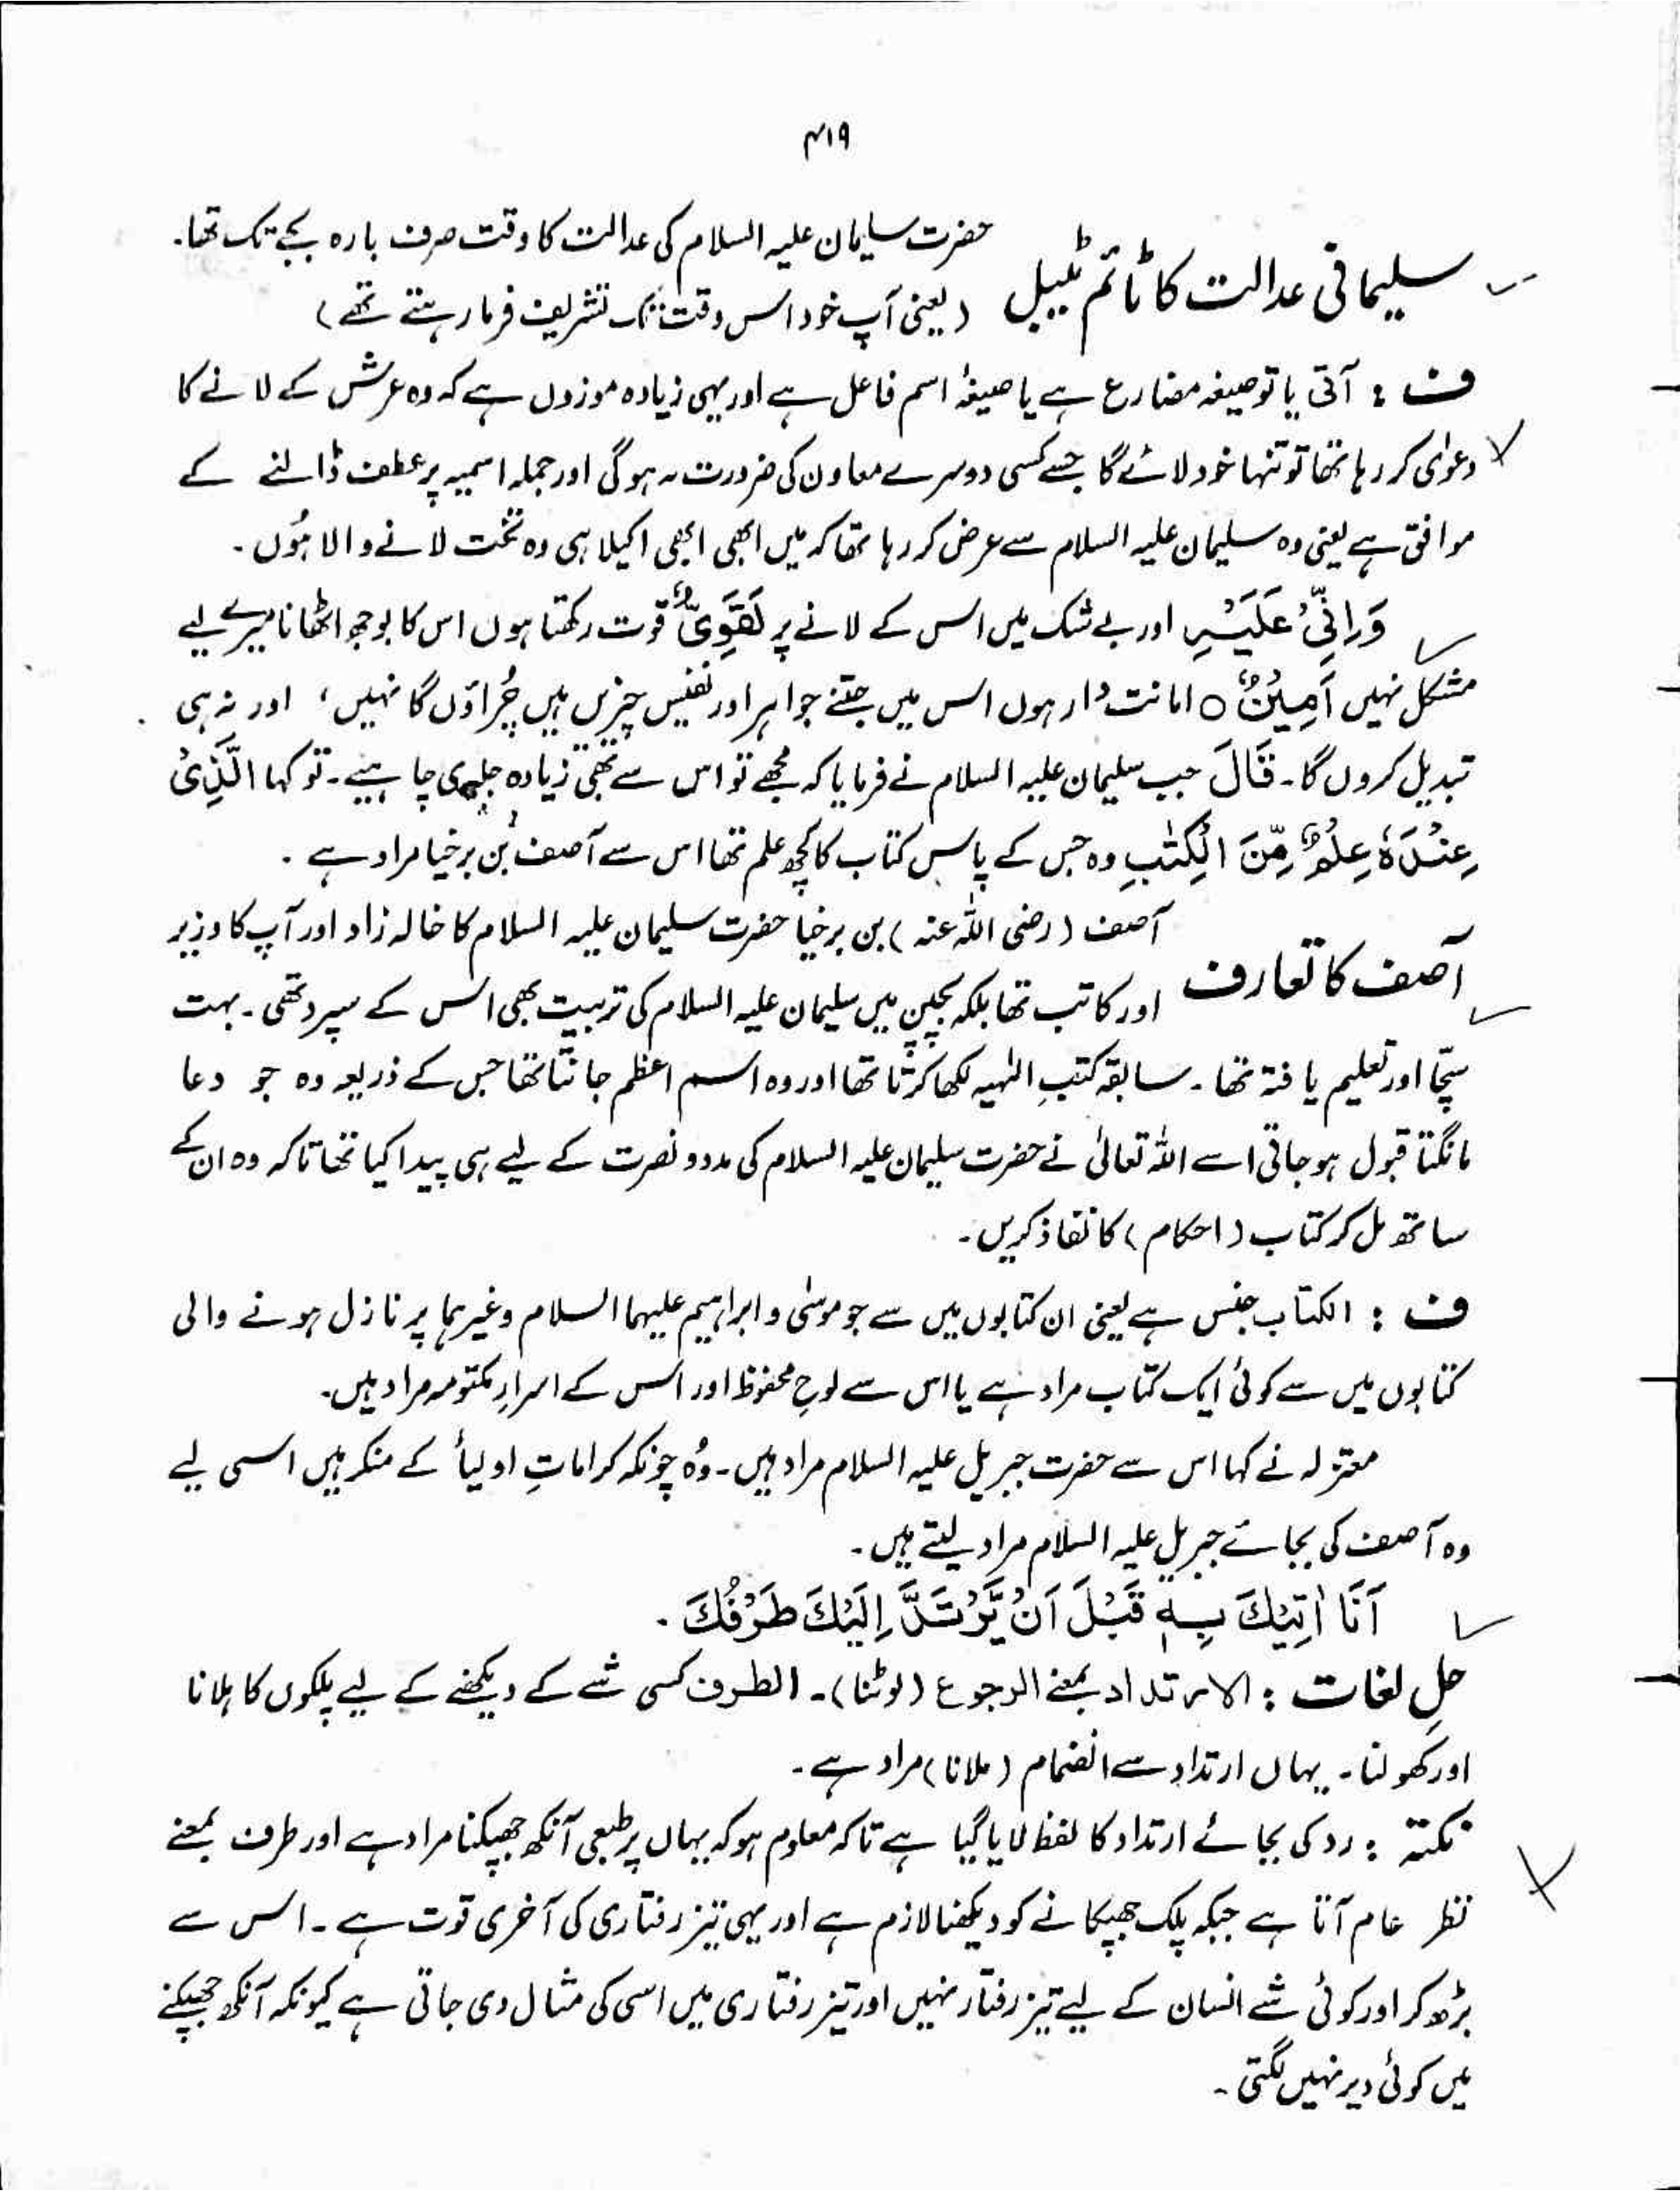 ۴۱۹
سلیمانی عدالت کا ٹائم ٹیبل
حضرت سلیمان علیہ السلام کی عدالت کا وقت صرف بارہ بجے تک تھا۔
(یعنی آپ خود اس وقت تک تشریف فرما رہتے تھے)
ف : آتی یا تو صیغہ مضارع ہے یا صیغۂ اسم فاعل ہے اور یہی زیادہ موزوں ہے کہ وہ عرش کے لانے کا
دعوٰی کر رہا تھا تو تنہا خود لائے گا جسے کسی دوسرے معاون کی ضرورت نہ ہوگی اور جملہ اسمیہ پر عطف ڈالنے کے
موافق ہے یعنی وہ سلیمان علیہ السلام سے عرض کر رہا تھا کہ میں ابھی ابھی اکیلا ہی وہ تخت لانے والا ہُوں۔
وَاِنِّیْ عَلَیْہِ اور بے شک میں اس کے لانے پر لَقَوِیٌّ قوت رکھتا ہوں اس کا بوجھ اٹھانا میرے لیے
مشکل نہیں اَمِیْنٌ ○ امانت دار ہوں اس میں جتنے جواہر اور نفیس چیزیں ہیں چُراؤں گا نہیں، اور نہ ہی
تبدیل کروں گا۔ قَالَ جب سلیمان علیہ السلام نے فرمایا کہ مجھے تو اس سے بھی زیادہ جلدی چاہیے۔ تو کہا الَّذِیْ
عِنْدَہٗ عِلْمٌ مِّنَ الْکِتٰبِ وہ جس کے پاس کتاب کا کچھ علم تھا اس سے آصف بن برخیا مراد ہے۔
آصف کا تعارف
آصف (رضی اللہ عنہ) بن برخیا حضرت سلیمان علیہ السلام کا خالہ زاد اور آپ کا وزیر
اور کاتب تھا بلکہ بچپن میں سلیمان علیہ السلام کی تربیت بھی اس کے سپرد تھی۔ بہت
سچّا اور تعلیم یافتہ تھا۔ سابقہ کتبِ الٰہیہ لکھا کرتا تھا اور وہ اسم اعظم جانتا تھا جس کے ذریعہ وہ جو دعا
مانگتا قبول ہوجاتی اسے اللہ تعالیٰ نے حضرت سلیمان علیہ السلام کی مدد و نصرت کے لیے ہی پیدا کیا تھا تاکہ وہ ان کے
ساتھ مل کر کتاب (احکام) کا نفاذ کریں۔
ف : الکتاب جنس ہے یعنی ان کتابوں میں سے جو موسٰی و ابراہیم علیہما السلام وغیرہما پر نازل ہونے والی
کتابوں میں سے کوئی ایک کتاب مراد ہے یا اس سے لوحِ محفوظ اور اس کے اسرارِ مکتومہ مراد ہیں۔
معتزلہ نے کہا اس سے حضرت جبریل علیہ السلام مراد ہیں۔ وُہ چونکہ کراماتِ اولیأ کے منکر ہیں اسی لیے
وہ آصف کی بجائے جبریل علیہ السلام مراد لیتے ہیں۔
اَنَا اٰتِیْكَ بِہٖ قَبْلَ اَنْ یَّرْتَدَّ اِلَیْكَ طَرْفُكَ۔
حلِ لغات : الارتداد بمعنے الرجوع (لوٹنا)۔ الطرف کسی شے کے دیکھنے کے لیے پلکوں کا ہلانا
اور کھولنا۔ یہاں ارتداد سے انضمام (ملانا) مراد ہے۔
نکتہ : رد کی بجائے ارتداد کا لفظ لایا گیا ہے تاکہ معلوم ہو کہ یہاں پر طبعی آنکھ جھپکنا مراد ہے اور طرف بمعنے
نظر عام آتا ہے جبکہ پلک جھپکانے کو دیکھنا لازم ہے اور یہی تیز رفتاری کی آخری قوت ہے۔ اس سے
بڑھ کر اور کوئی شے انسان کے لیے تیز رفتار نہیں اور تیز رفتاری میں اسی کی مثال دی جاتی ہے کیونکہ آنکھ جھپکنے
میں کوئی دیر نہیں لگتی۔